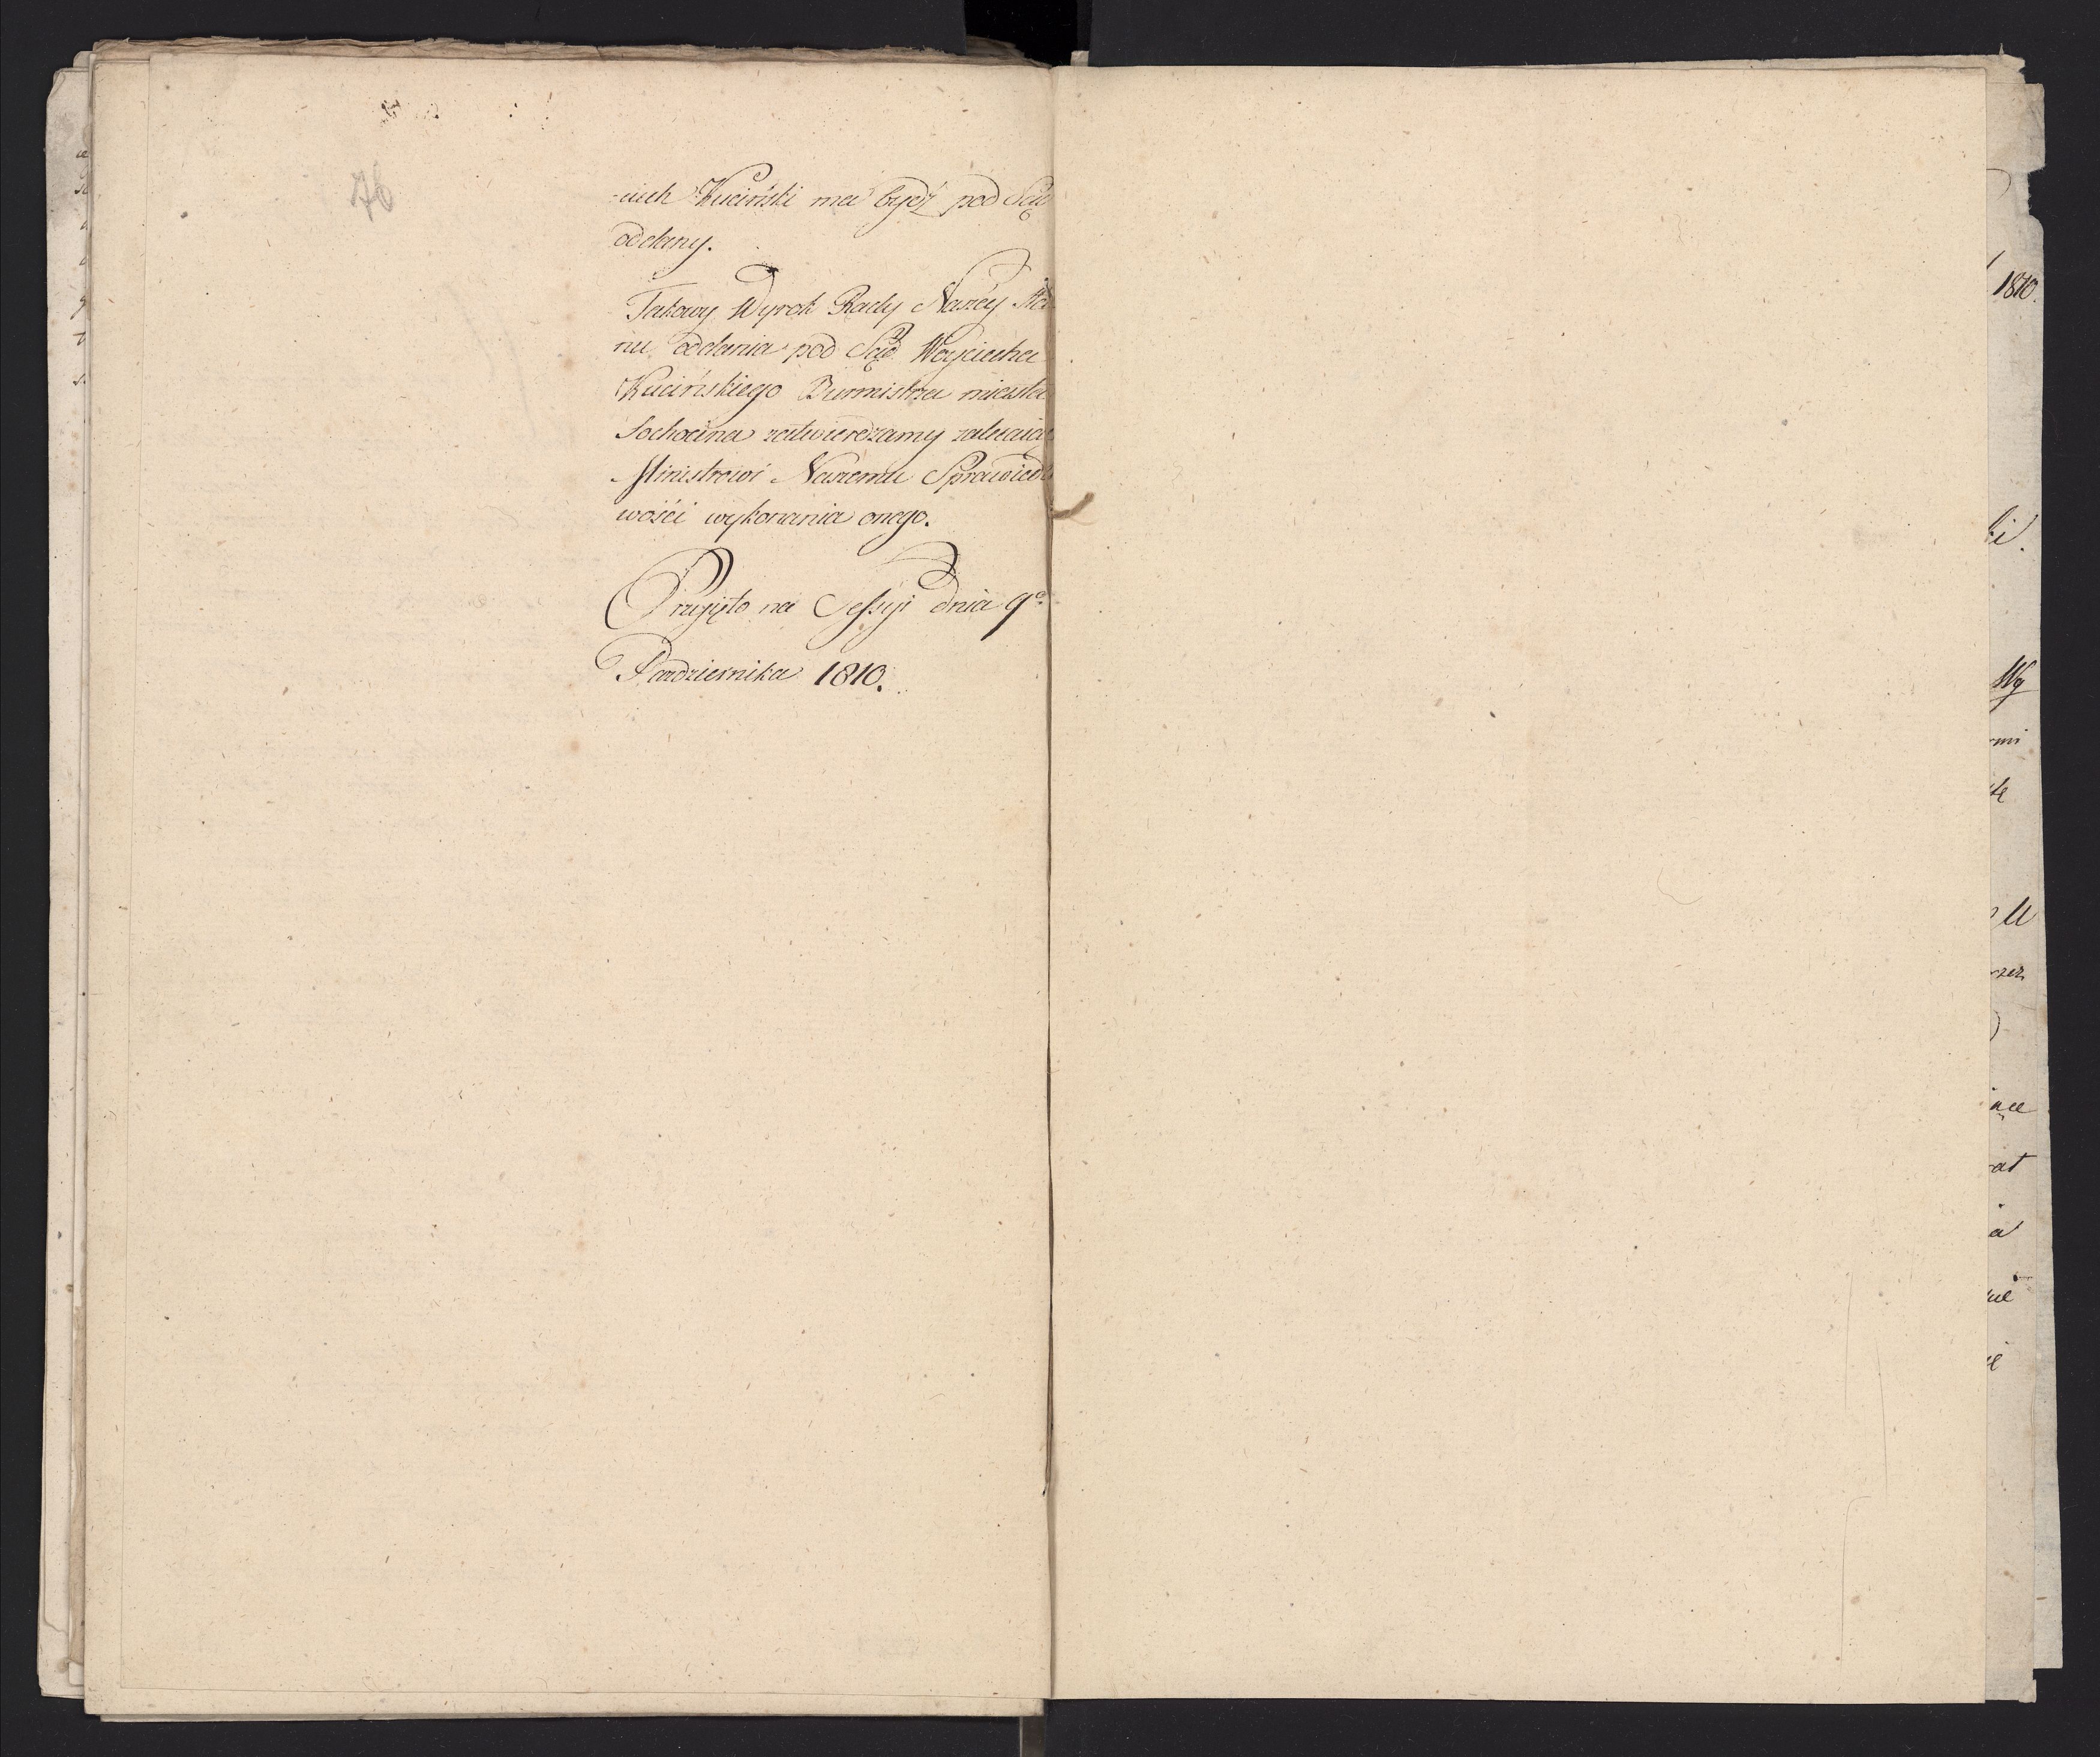 76
-ciech Kuciński ma bydź pod Sąd
oddany.
Takowy Wyrok Rady Naszey Sta
nu oddania pod Sąd Woyciecha
Kucińskiego Burmistrza miasta
Sochocina zatwierdzamy zalecaiąc
Ministrowi Naszemu Sprawiedli
wości wykonania onego.
Przyięto na Sessyi dnia 9o
Pazdziernika 1810.
1810.